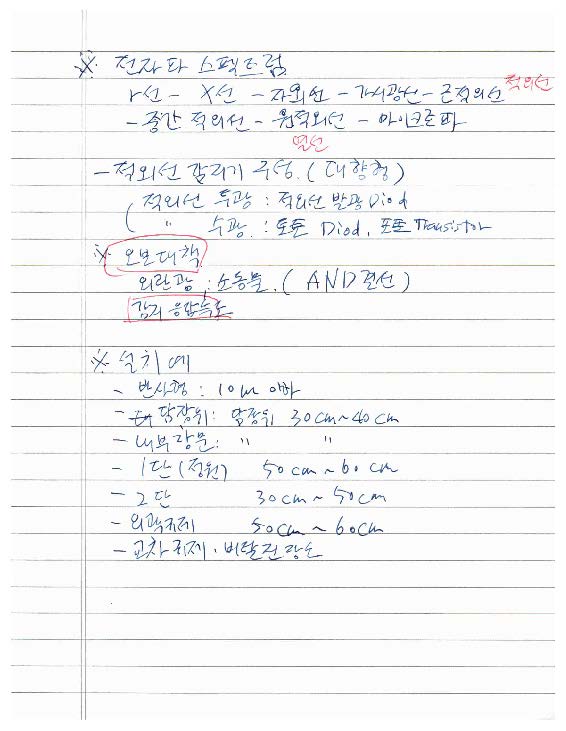 ※ 전자파 스펙트럼
r선 - X선 - 자외선 - 가시광선 - 근적외선 적외선
- 중간 적외선 - 원적외선 - 마이크로파
열선
- 적외선 감지기 구성. (대향형)
( 적외선 투광 : 적외선 발광 Diod
" 수광. : 포토 Diod, 포토 Transistor
※ 오보대책
외란광 : 소동물. ( AND결선 )
감지 응답속도
※ 설치 예
- 반사형 : 10m 이하
- 담장위 : 담장위 30cm~40cm
- 내부창문 : " "
- 1단 (정원) 50cm~60cm
- 2단 30cm~50cm
- 외곽취제 50cm~60cm
- 교차취제.